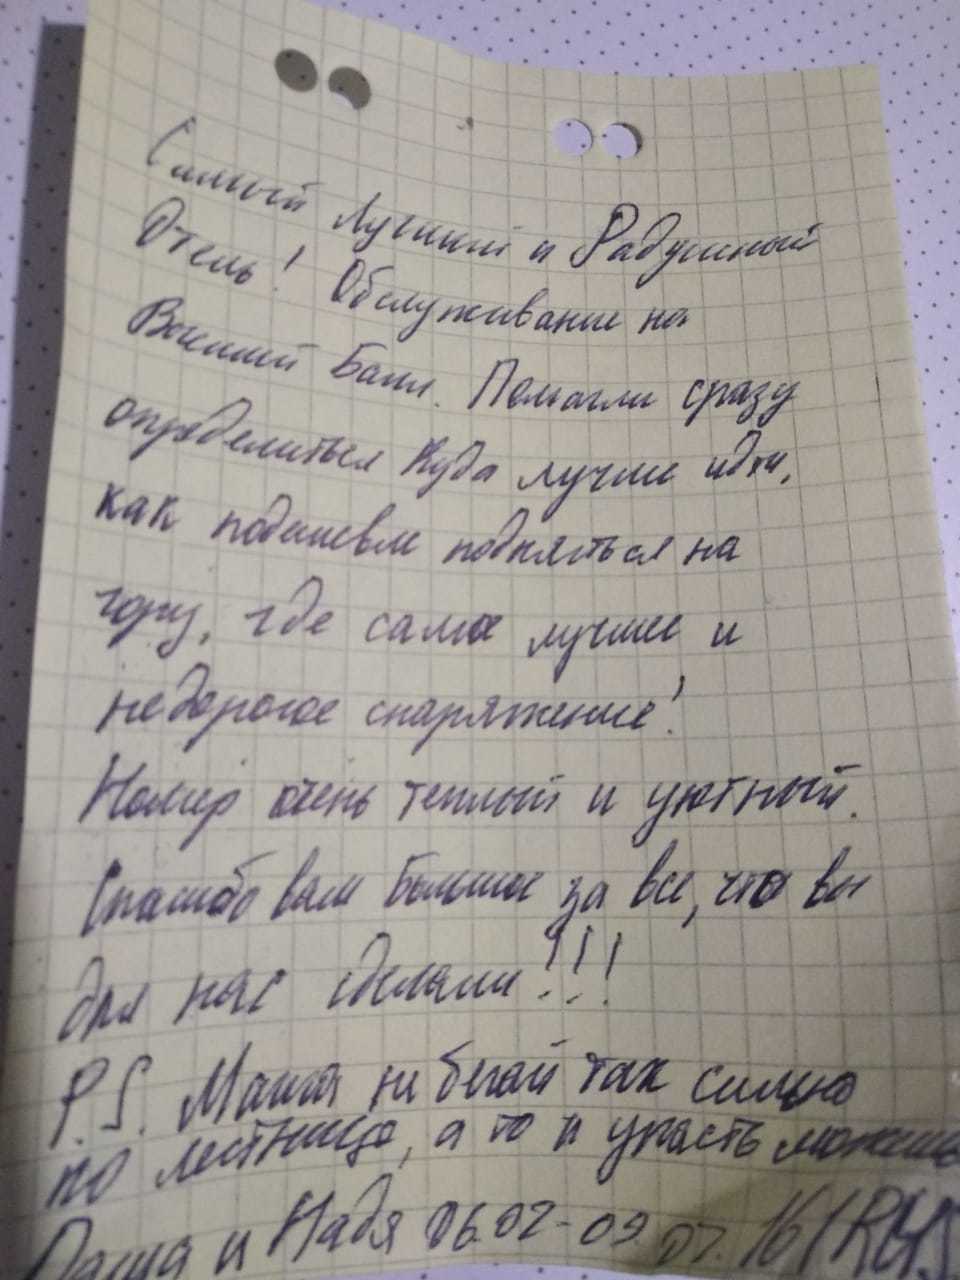 Самый Лучший и Радушный
Отель! Обслуживание на
Высший Балл. Помогли сразу
определиться куда лучше идти,
как подешевле подняться на
гору, где самое лучшее и
недорогое снаряжение!
Номер очень теплый и уютный.
Спасибо вам большое за все, что вы
для нас сделали!!!
P.S. Маша не бегай так сильно
по лестнице, а то и упасть можешь
Даша и Надя 06.02-09.02.16 (RUS